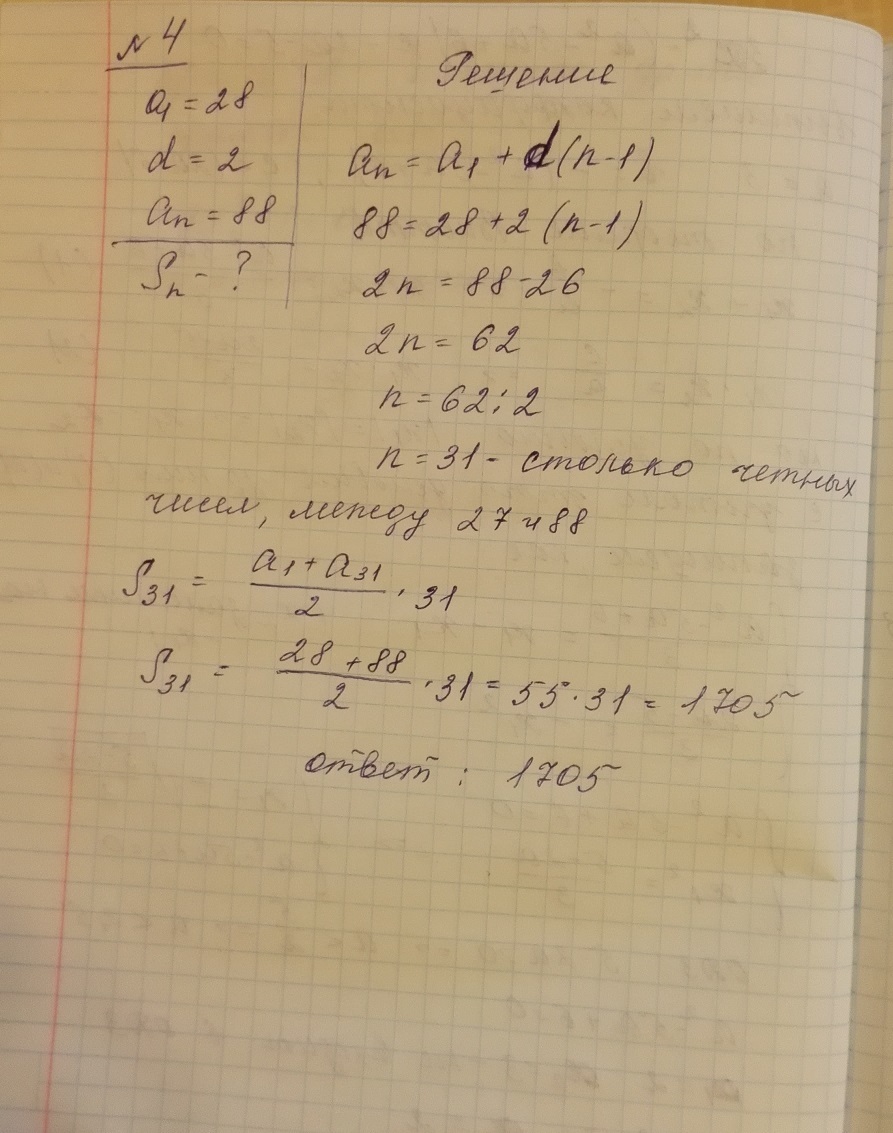 № 4
a₁ = 28
d = 2
aₙ = 88
Sₙ - ?
Решение
aₙ = a₁ + d (n-1)
88 = 28 + 2 (n-1)
2n = 88-26
2n = 62
n = 62 : 2
n = 31 - столько четных
чисел, между 27 и 88
S₃₁ = (a₁ + a₃₁)/2 · 31
S₃₁ = (28 + 88)/2 · 31 = 55 · 31 = 1705
ответ : 1705